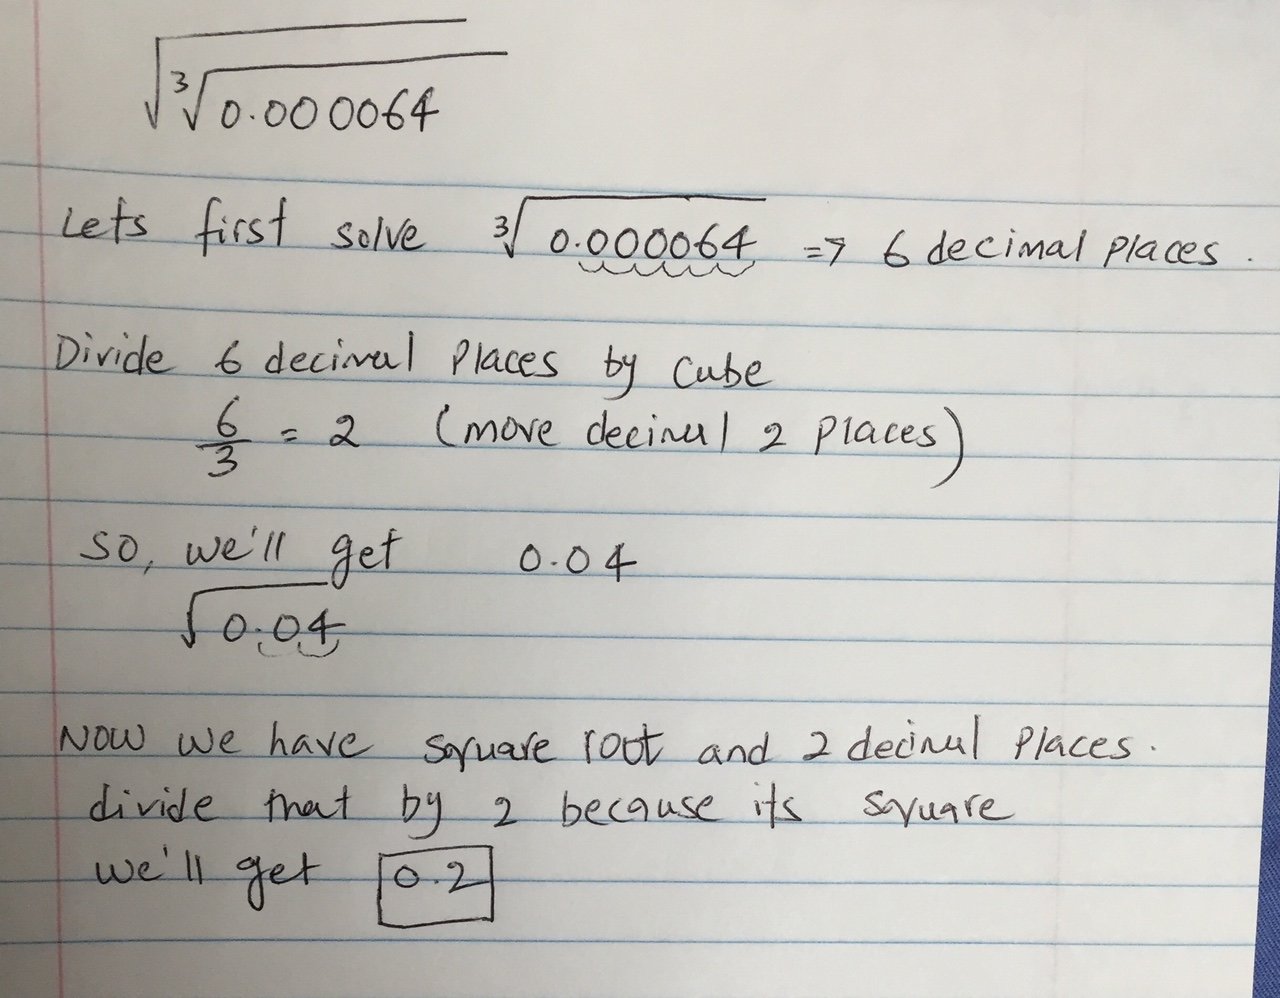 √∛0.000064
Lets first solve ∛0.000064 => 6 decimal places.
Divide 6 decimal places by cube
6/3 = 2 (move decimal 2 places)
So, we'll get 0.04
√0.04
Now we have square root and 2 decimal places.
divide that by 2 because its square
we'll get 0.2